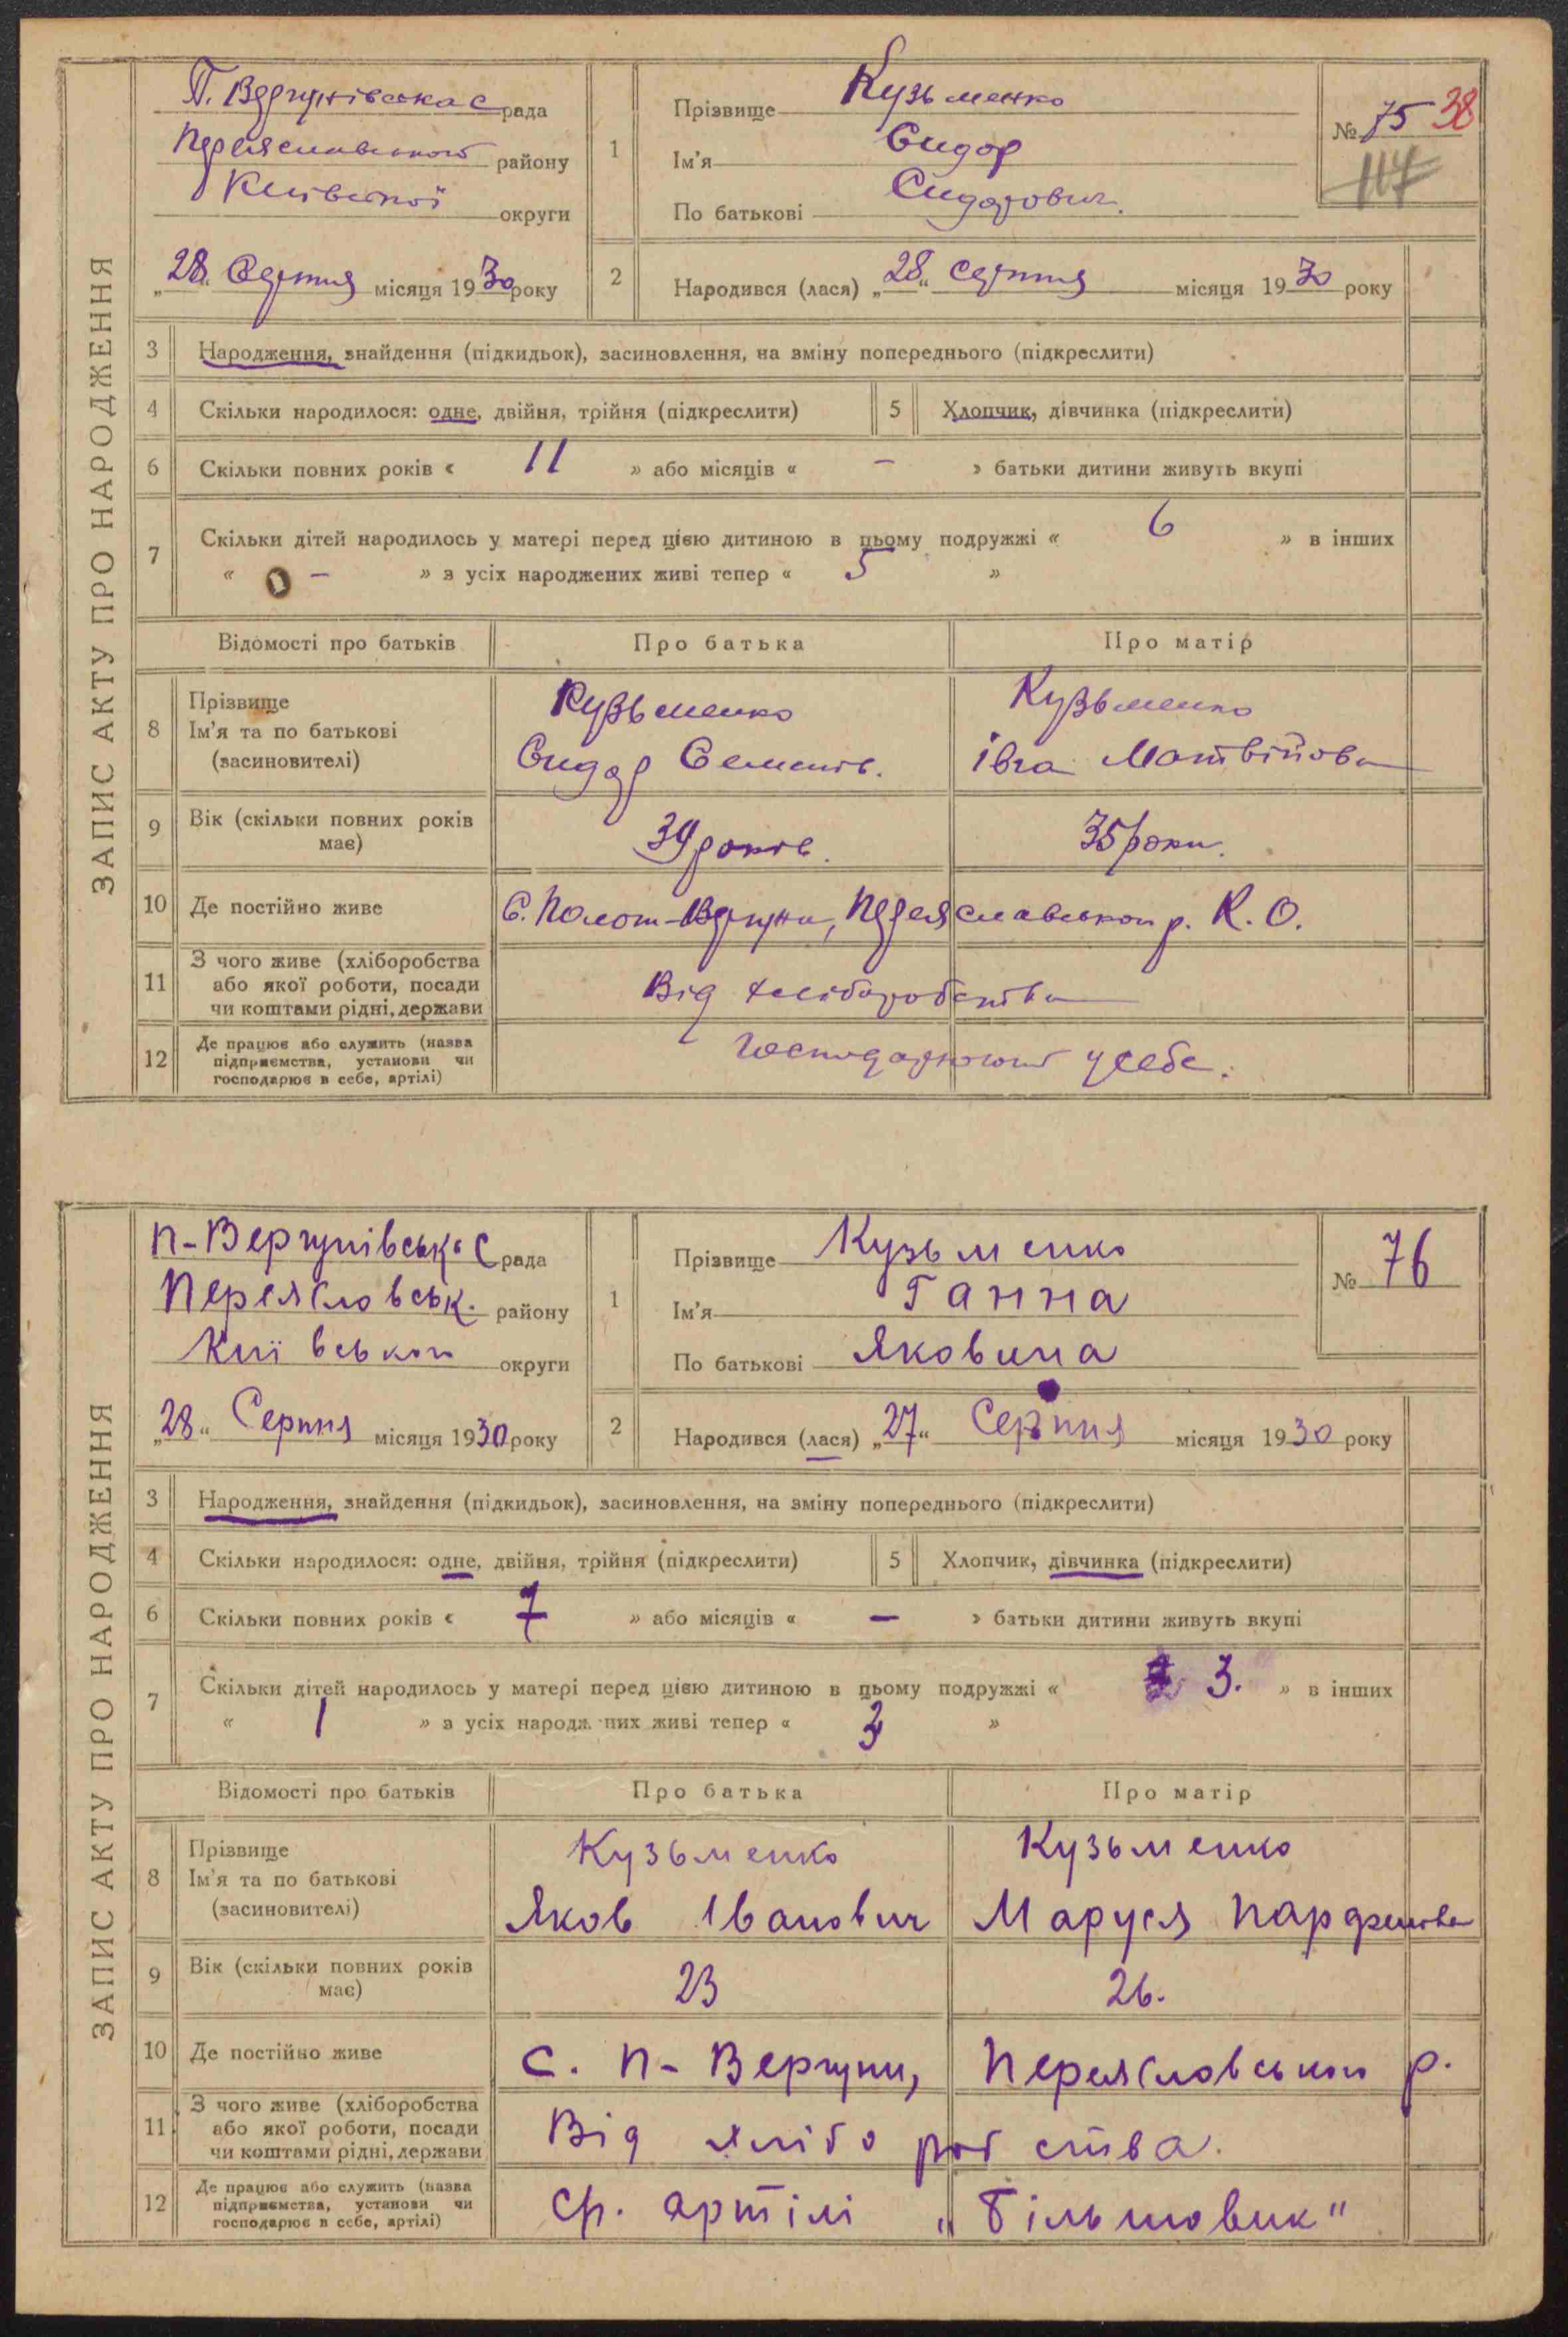 ЗАПИС АКТУ ПРО НАРОДЖЕННЯ
П. Вергунівська с рада
Переяславського району
Київської округи
„28“ Серпня місяця 1930 року
1 Прізвище Кузьменко
Ім'я Сидор
По батькові Сидорович.
№ 75 38
117
2 Народився (лася) „28“ серпня місяця 1930 року
3 Народження, знайдення (підкидьок), засиновлення, на зміну попереднього (підкреслити)
4 Скільки народилося: одне, двійня, трійня (підкреслити) 5 Хлопчик, дівчинка (підкреслити)
6 Скільки повних років « 11 » або місяців « – » батьки дитини живуть вкупі
7 Скільки дітей народилось у матері перед цією дитиною в цьому подружжі « 6 » в інших
« 0 – » з усіх народжених живі тепер « 5 »
Відомості про батьків Про батька Про матір
8 Прізвище
Ім'я та по батькові
(засиновителі)
Кузьменко
Сидор Семенов.
Кузьменко
Івга Матвійовна
9 Вік (скільки повних років має) 39 років. 35 роки.
10 Де постійно живе С. Полот-Вергуни, Переяславського р. К. О.
11 З чого живе (хліборобства
або якої роботи, посади
чи коштами рідні, держави
Від хліборобства
12 Де працює або служить (назва
підприємства, установи чи
господарює в себе, артілі)
Господарюють у себе.
ЗАПИС АКТУ ПРО НАРОДЖЕННЯ
П-Вергунівська С рада
Переясловськ. району
Київської округи
„28“ Серпня місяця 1930 року
1 Прізвище Кузьменко
Ім'я Ганна
По батькові Яковина
№ 76
2 Народився (лася) „27“ Серпня місяця 1930 року
3 Народження, знайдення (підкидьок), засиновлення, на зміну попереднього (підкреслити)
4 Скільки народилося: одне, двійня, трійня (підкреслити) 5 Хлопчик, дівчинка (підкреслити)
6 Скільки повних років « 7 » або місяців « – » батьки дитини живуть вкупі
7 Скільки дітей народилось у матері перед цією дитиною в цьому подружжі « 3. » в інших
« 1 » з усіх народжених живі тепер « »
Відомості про батьків Про батька Про матір
8 Прізвище
Ім'я та по батькові
(засиновителі)
Кузьменко
Яков Іванович
Кузьменко
Маруся Парфенівна
9 Вік (скільки повних років має) 23 26.
10 Де постійно живе С. П-Вергуни, Переясловського р.
11 З чого живе (хліборобства
або якої роботи, посади
чи коштами рідні, держави
Від хліборобства.
12 Де працює або служить (назва
підприємства, установи чи
господарює в себе, артілі)
Ср. артілі „Більшовик"